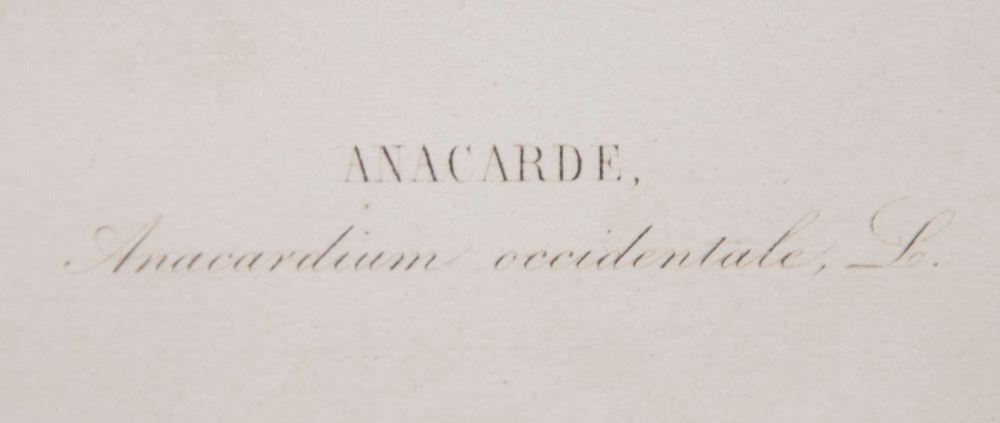 ANACARDE,
Anacardium occidentale, L.